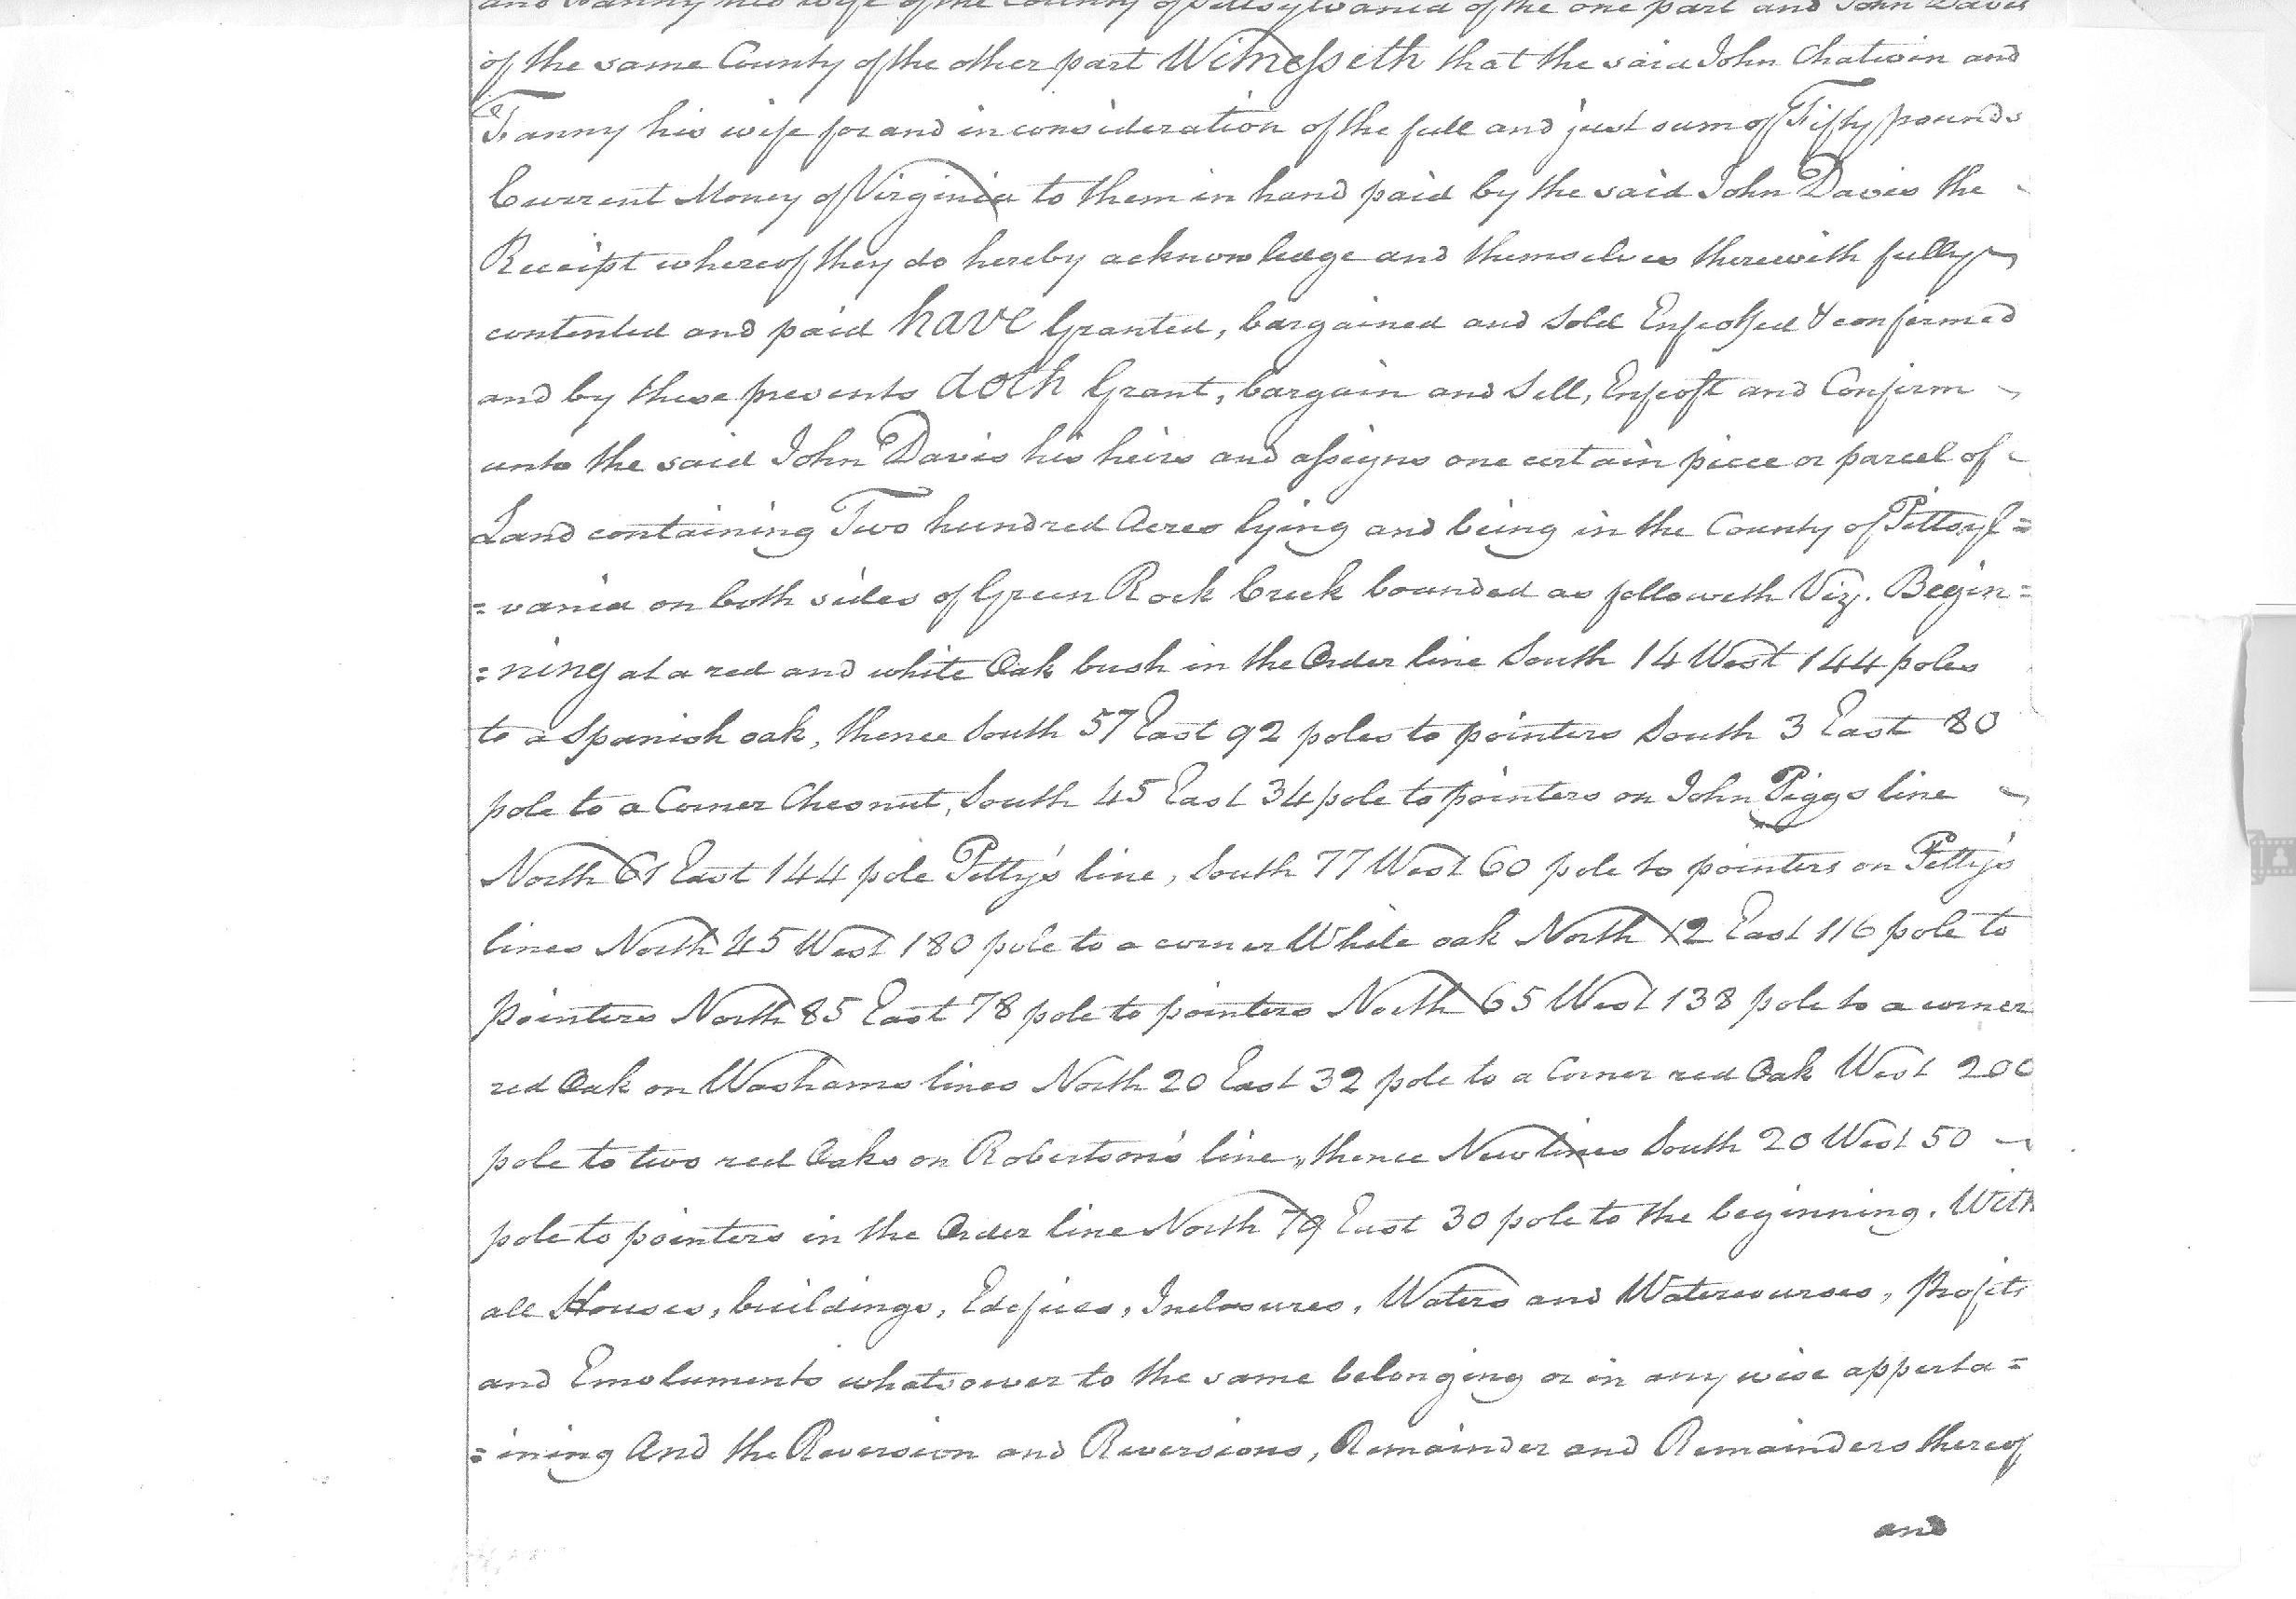 and Fanny his wife of the County of Pittsylvania of the one part and John Davis
of the same County of the other part Witnesseth that the said John Chatwin and
Fanny his wife for and in consideration of the full and just sum of Fifty pounds
Current Money of Virginia to them in hand paid by the said John Davis the
Receipt whereof they do hereby acknowledge and themselves therewith fully
contented and paid have Granted, bargained and sold Enfeoffed & confirmed
and by these presents doth Grant, bargain and Sell, Enfeoff and Confirm
unto the said John Davis his heirs and assigns one certain piece or parcel of
Land containing Two hundred Acres lying and being in the County of Pittsyl=
=vania on both sides of Green Rock Creek bounded as followeth Viz. Begin=
=ning at a red and white Oak bush in the Order line South 14 West 144 poles
to a Spanish oak, thence South 57 East 92 poles to pointers South 3 East 80
pole to a Corner Chesnut, South 45 East 34 pole to pointers on John Piggs line
North 61 East 144 pole Petty's line, South 77 West 60 pole to pointers on Petty's
lines North 45 West 180 pole to a corner White oak North 12 East 116 pole to
pointers North 85 East 78 pole to pointers North 65 West 138 pole to a corner
red Oak on Washams lines North 20 East 32 pole to a Corner red Oak West 200
pole to two red Oaks on Robertson's line, thence New lines South 20 West 50
pole to pointers in the Order line North 79 East 30 pole to the beginning. With
all Houses, buildings, Edifices, Inclosures, Waters and Watercourses, Profits
and Emoluments whatsoever to the same belonging or in any wise apperta=
=ining And the Reversion and Reversions, Remainder and Remainders thereof
and